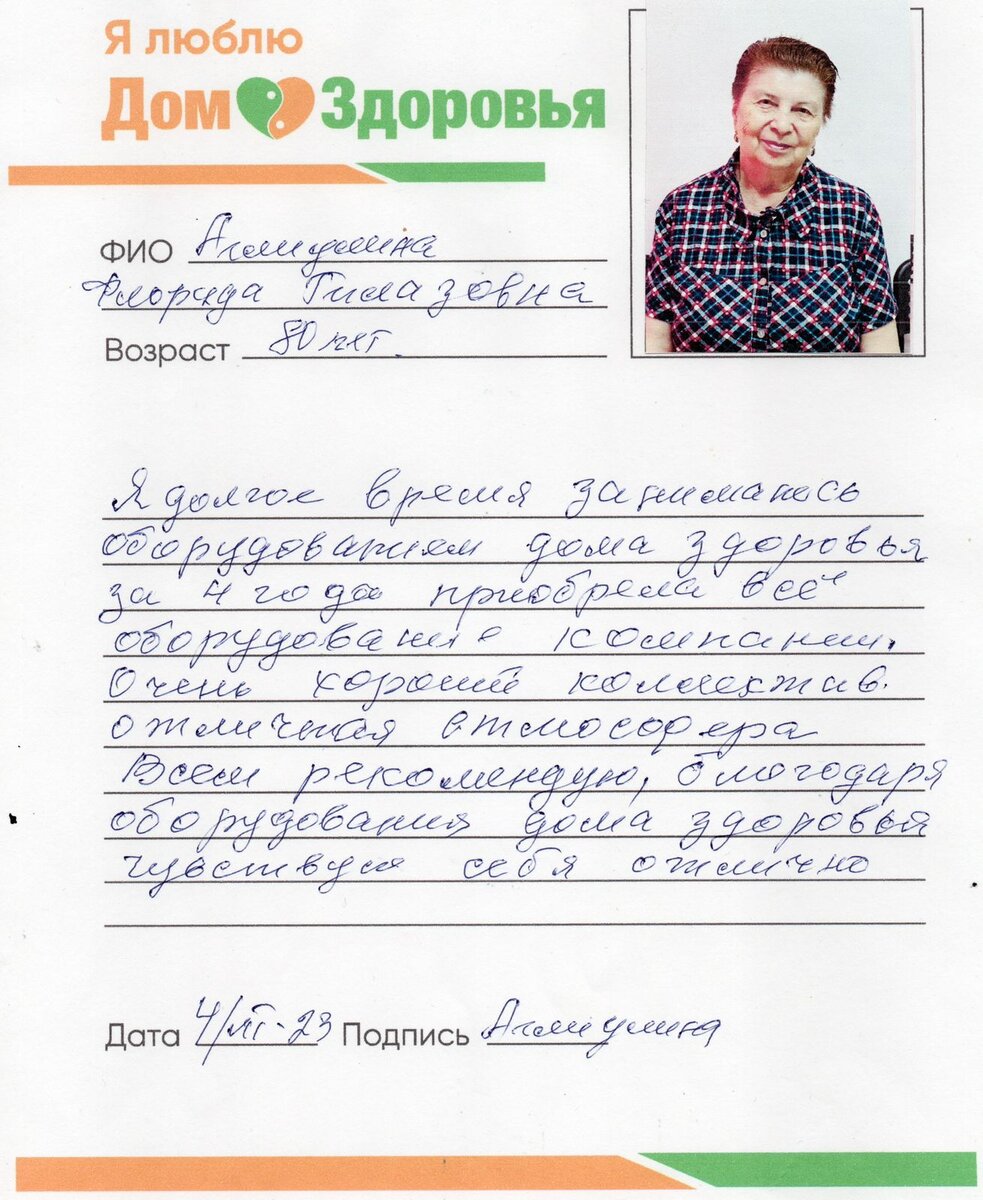 Я люблю
Дом Здоровья
ФИО
Флорида Гилазовна
Возраст 80 лет.
Я долгое время занималась
оборудованием дома здоровья
за 4 года приобрела всё
оборудование компании.
Очень хороший коллектив.
отличная атмосфера
Всем рекомендую, благодаря
оборудования дома здоровья
чувствую себя отлично
Дата Подпись